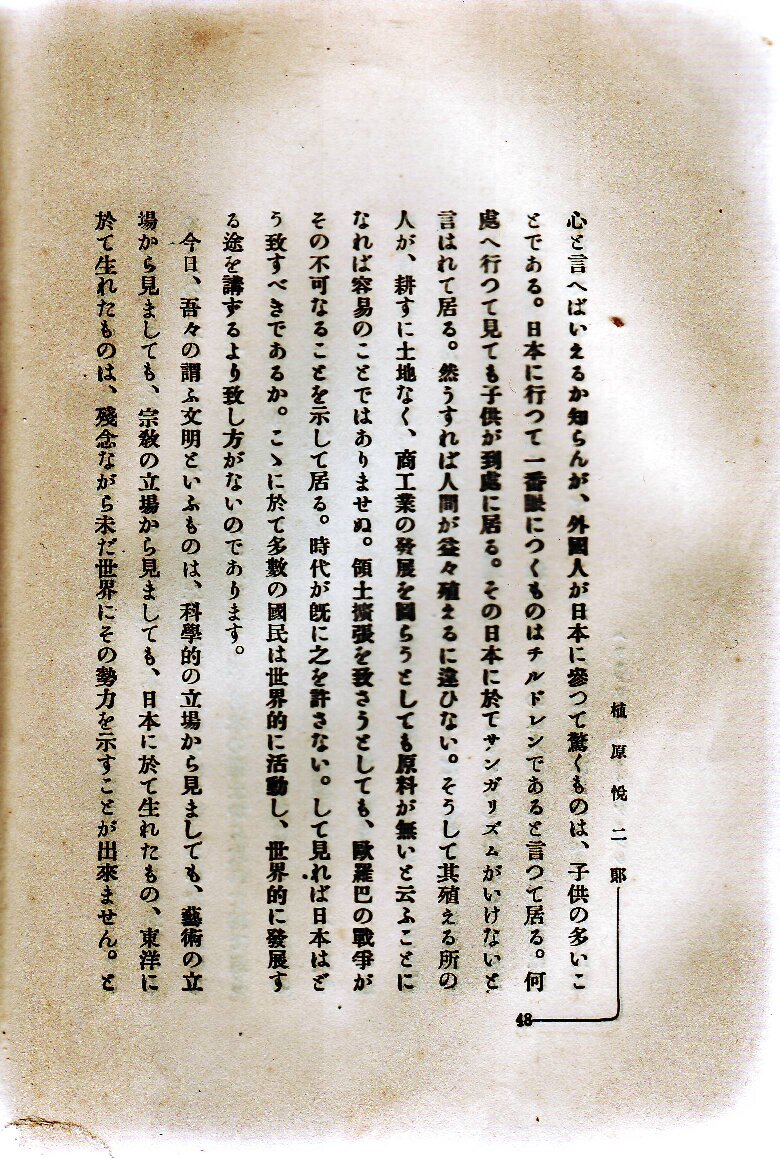 植原悦二郎
48
心と言へばいえるか知らんが、外國人が日本に參つて驚くものは、子供の多いこ
とである。日本に行つて一番眼につくものはチルドレンであると言つて居る。何
處へ行つて見ても子供が到處に居る。その日本に於てサンガリズムがいけないと
言はれて居る。然うすれば人間が益々殖えるに違ひない。そうして其殖える所の
人が、耕すに土地なく、商工業の發展を圖らうとしても原料が無いと云ふことに
なれば容易のことではありませぬ。領土擴張を致さうとしても、歐羅巴の戰爭が
その不可なることを示して居る。時代が既に之を許さない。して見れば日本はど
う致すべきであるか。こゝに於て多數の國民は世界的に活動し、世界的に發展す
る途を講ずるより致し方がないのであります。
今日、吾々の謂ふ文明といふものは、科學的の立場から見ましても、藝術の立
場から見ましても、宗敎の立場から見ましても、日本に於て生れたもの、東洋に
於て生れたものは、殘念ながら未だ世界にその勢力を示すことが出來ません。と